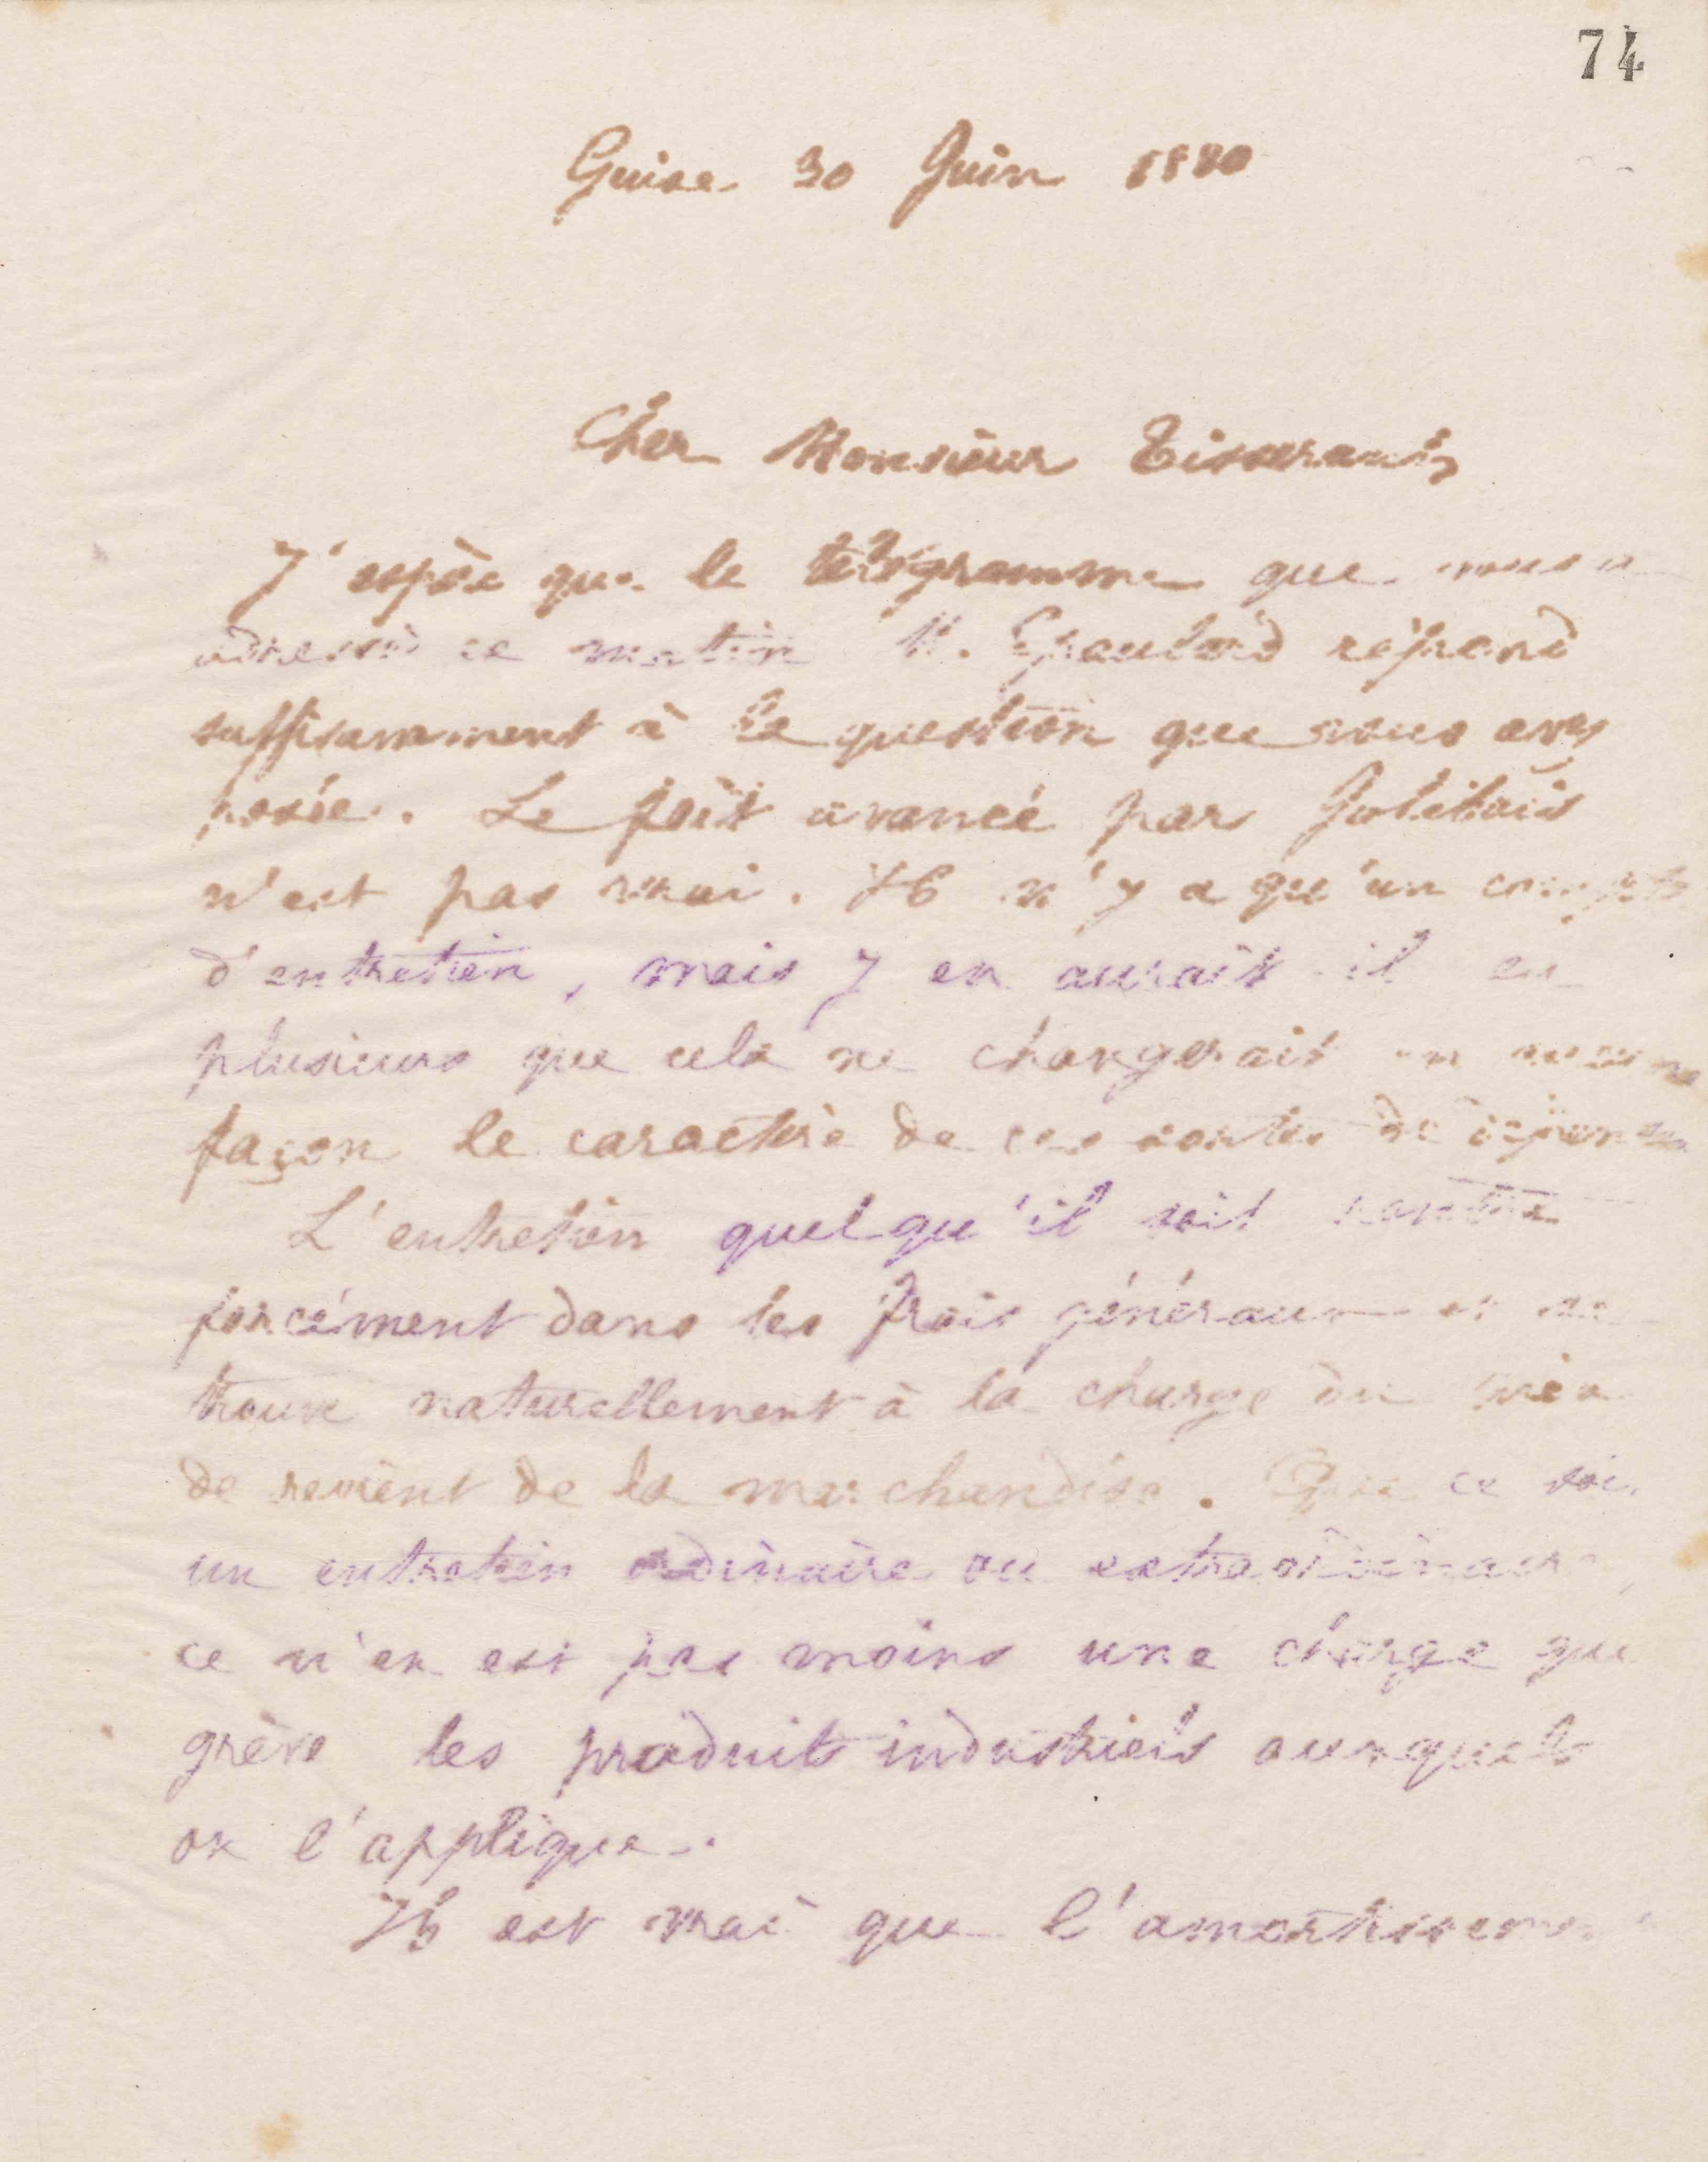 74
Guise 30 Juin 1880
Cher Monsieur Tisserant,
J'espère que le télégramme que vous a
adressé ce matin M. Epaulard répond
suffisamment à la question que vous avez
posée. Le fait avancé par
n'est pas vrai. Il n'y a qu'un compte
d'entretien, mais y en aurait-il eu
plusieurs que cela ne changerait en aucune
façon le caractère de ces sortes de dépenses
L'entretien quel qu'il soit rentre
forcément dans les frais généraux et se
trouve naturellement à la charge du prix
de revient de la marchandise. Que ce soit
un entretien ordinaire ou extraordinaire,
ce n'en est pas moins une charge qui
grève les produits industriels auxquels
on l'applique.
Il est vrai que l'amortissement